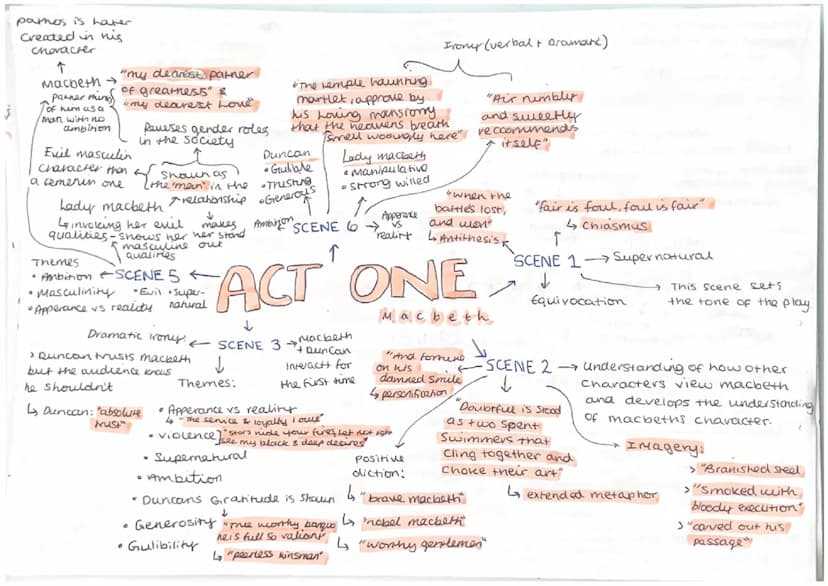 pathos is later
created in his
character
Macbeth
partner thing
of him as a
man with no
ambition
"my dearest partner
of greatness" &
"my dearest love"
Reveses gender roles
in the society
Evil masculin
character than
a feminin one
Shown as
the "man" in the
relationship
Lady macbeth
invoking her evil
qualities - shows her
masculine
qualities
makes
her stand
out
Themes
• Ambition
• Masculinity
• Evil
• Super-
natural
• Apperance vs reality
SCENE 5
Irony (verbal + Dramatic)
"The temple haunting
martlet, approve by
his loving mansionry
that the heavens breath
smell wooingly here"
"Air nimbly
and sweetly
recommends
itself"
Duncan
• Gulible
• Trusting
• Generous
Lady macbeth
• Manipulative
• Strong willed
Ambition
SCENE 6
Apperance vs
reality
ACT ONE
Macbeth
"When the
battles lost,
and won"
Antithesis
"fair is foul, foul is fair"
Chiasmus
SCENE 1
Supernatural
Equivocation
This scene sets
the tone of the play.
SCENE 2
Understanding of how other
characters view macbeth
and develops the understanding
of macbeths character.
"And fortune
on his
damned smile
personification
"Doubtful is stood
as two spent
swimmers that
cling together and
choke their art"
extended metaphor
Imagery:
> "Branished steel
> "Smoked with
bloody execution"
> "carved out his
passage"
Positive
diction:
"brave macbeth"
"nobel macbeth"
"worthy gentlemen"
SCENE 3
Dramatic irony:
> Duncan trusts macbeth
but the audience knows
he shouldn't
Duncan: "absolute
trust"
Macbeth
+ Duncan
interact for
the first time
Themes:
• Apperance vs reality
"The service & loyalty I owe"
• Violence
"stars hide your fires, let not light
see my black & deep desires"
• Supernatural
• Ambition
• Duncans Gratitude is shown
• Generosity
"True worthy banquo
he is full so valiant"
• Gulibility
"peerless kinsman"